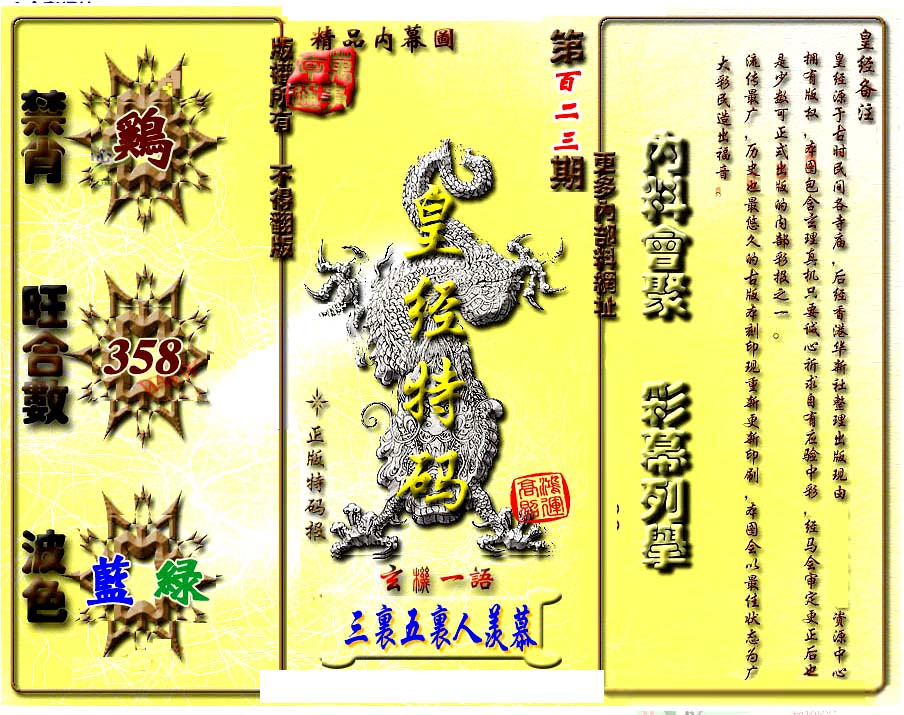 精品内幕圖
第百二三期
版權所有 不得翻版
更多內部料網址
禁肖
鷄
旺合數
358
波色
藍 綠
皇经特码
正版特码报
鴻運高照
玄機一語
三裏五裏人羡慕
內料會聚 彩幕列舉
皇经备注
皇经源于古时民间各寺庙,后经香港华新社整理出版现由 资源中心
拥有版权,本图包含玄理真机只要诚心祈求自有应验中彩,经马会审定更正后也
是少数可正式出版的内部彩报之一。
流传最广,历史也最悠久的古版本刻印现重新更新印刷,本图会以最佳状态为广
大彩民造出福音